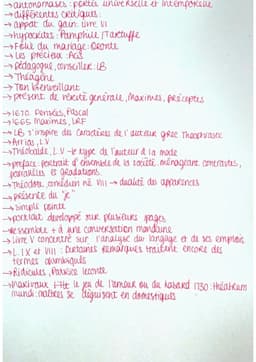 → antonomases: portée universelle et intemporelle
→ différentes critiques:
→ appât du gain: livre VI
→ hypocrites: Pamphile / Tartuffe
→ Folie du mariage: Oronte
→ Les précieux: Acis
→ pédagogue, conseiller: LB
→ Théagène
→ Ton bienveillant
→ présent de vérité générale, Maximes, préceptes
→ 1670 Pensées, Pascal
→ 1665 Maximes, LRF
→ LB s'inspire des Caractères de l'auteur grec Théophraste
→ Arrias, L.V
→ Théobalde, L.V → le type de l'auteur à la mode
→ préface: portrait d'ensemble de la société, ménageant contrastes, parallèles et gradations
→ Théodote, comédien né VIII → dualité des apparences
→ présence du "je"
→ simple pointe
→ portrait développé sur plusieurs pages
→ ressemble + à une conversation mondaine
→ livre V concentré sur l'analyse du langage et de ses emplois
→ L. IX et VIII: Certaines remarques traitent encore des
termes
→ Ridicules, Patrice Leconte
→ Marivaux le jeu de l'amour ou du hasard 1730: theatrum
mundi: maîtres se déguisent en domestiques